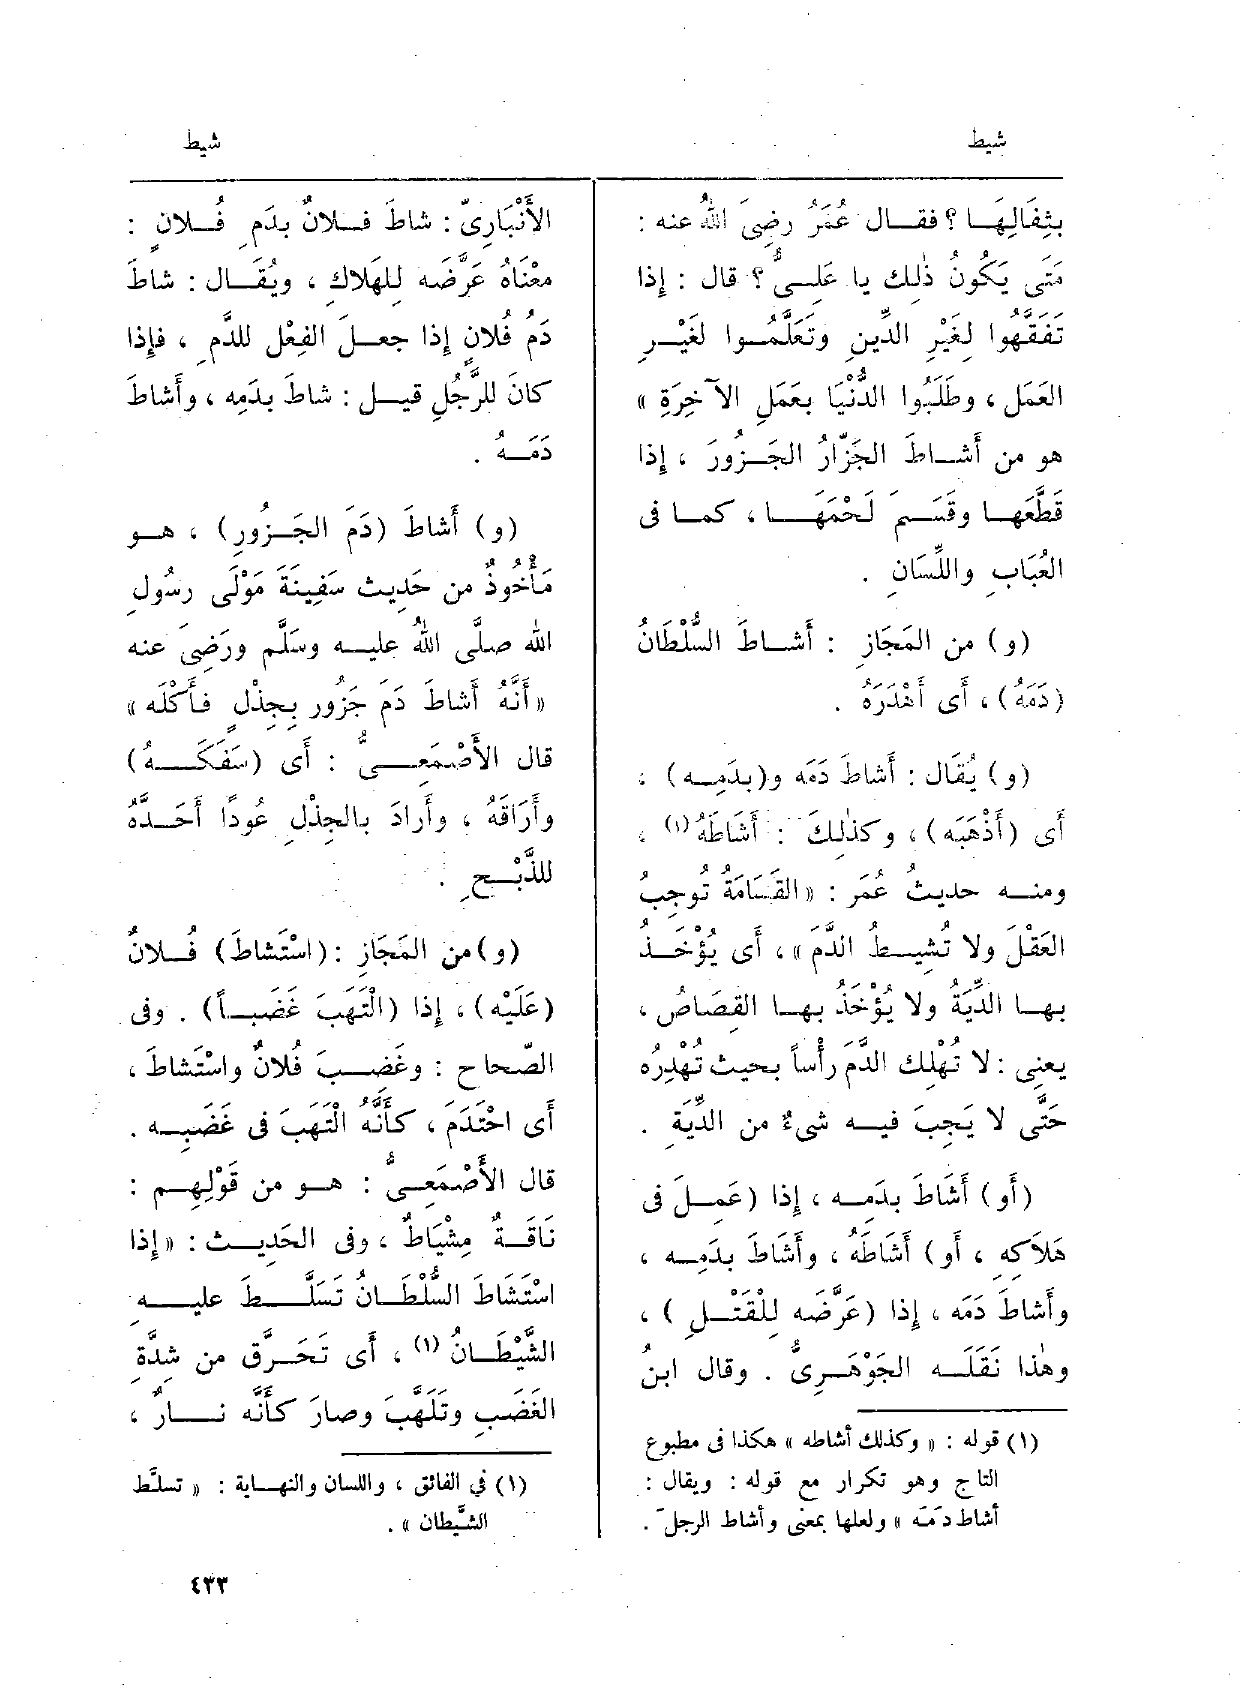 شيط
شيط
بِثِفَالِهَا ؟ فقال عُمَرُ رضِىَ اللهُ عنه :
مَتَى يَكُونُ ذٰلِك يا عَلِىُّ ؟ قال : إِذا
تَفَقَّهُوا لِغَيْرِ الدِّينِ وتَعَلَّمُوا لغَيْرِ
العَمَلِ ، وطَلَبُوا الدُّنْيَا بعَمَلِ الآخِرَةِ »
هو من أَشاطَ الجَزّارُ الجَزُورَ ، إِذا
قَطَّعَها وقَسَمَ لَحْمَهَا ، كما فى
العُبَابِ واللِّسَانِ .
(و) من المَجَازِ : أَشاطَ السُّلْطَانُ
(دَمَهُ) ، أَى أَهْدَرَهُ .
(و) يُقَال : أَشاطَ دَمَه و(بدَمِه) :
أَى (أَذْهَبَه) ، وكذٰلِكَ : أَشَاطَهُ (١) ،
ومنه حديثُ عُمَر : « القَسَامَةُ تُوجِبُ
العَقْلَ ولا تُشِيطُ الدَّمَ » ، أَى يُؤْخَذُ
بها الدِّيَةُ ولا يُؤْخَذُ بها القِصَاصُ ،
يعنِى : لا تُهْلِك الدَّمَ رأْساً بحيث تُهْدِرُه
حَتَّى لا يَجِبَ فيه شىءٌ من الدِّيَةِ .
(أَو) أَشَاطَ بدَمِه ، إِذا (عَمِلَ فى
هَلاَكِه ، أَو) أَشَاطَهُ ، وأَشَاطَ بدَمِه ،
وأَشاطَ دَمَه ، إِذا (عَرَّضَه لِلْقَتْلِ ) ،
وهٰذا نَقَلَه الجَوْهَرِىُّ . وقال ابنُ
(١) قوله : « وكذلك أشاطه » هكذا فى مطبوع
التاج وهو تكرار مع قوله : ويقال :
أشاط دَمَه » ولعلها بمعنى وأشاط الرجلَ .
الأَنْبَارِىّ : شاطَ فلانٌ بدَمِ فُلانٍ :
معْنَاهُ عَرَّضَه لِلهَلاكِ ، ويُقَال : شاطَ
دَمُ فُلانٍ إِذا جعلَ الفِعْل للدَّمِ ، فإِذا
كانَ للرَّجُلِ قيل : شاطَ بدَمِه ، وأَشاطَ
دَمَهُ .
(و) أَشاطَ (دَمَ الجَزُورِ) ، هو
مَأْخُوذٌ من حَدِيث سَفِينَةَ مَوْلَى رسُولِ
الله صلَّى اللهُ عليه وسَلَّم ورَضِىَ عنه
« أَنَّهُ أَشاطَ دَمَ جَزُورٍ بِجِذْلٍ فأَكَلَه »
قال الأَصْمَعِىُّ : أَى (سَفَكَهُ)
وأَرَاقَهُ ، وأَرادَ بالجِذْلِ عُودًا أَحَدَّهُ
للذَّبْحِ .
(و)من المَجَازِ :(اسْتَشاطَ) فُلانٌ
(عَلَيْه) ، إِذا (الْتَهَبَ غَضَباً) . وفى
الصّحاحِ : وغَضِبَ فُلانٌ واسْتَشاطَ ،
أَى احْتَدَمَ ، كأَنَّهُ الْتَهَبَ فى غَضَبِه .
قال الأَصْمَعِىُّ : هو من قَوْلِهِم :
نَاقَةٌ مِشْيَاطٌ ، وفى الحَدِيث : « إِذا
اسْتَشَاطَ السُّلْطَانُ تَسَلَّطَ عليه
الشَّيْطَانُ (١) ، أَى تَحَرَّق من شدَّةِ
الغَضَبِ وتَلَهَّبَ وصارَ كأَنَّه نارٌ ،
(١) في الفائق ، واللسان والنهاية : « تسلَّط
الشَّيطان » .
٤٣٣